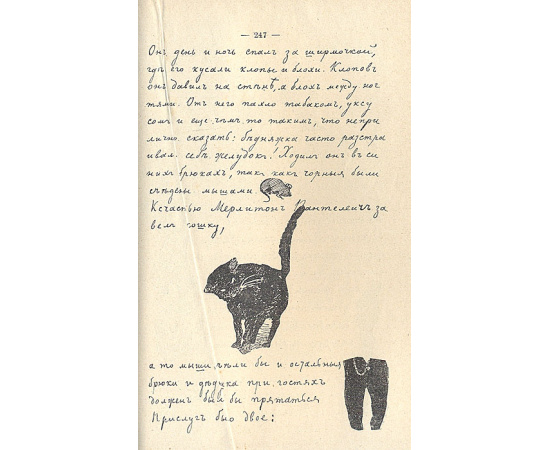 — 247 —
Онъ день и ночь спалъ за ширмочкой,
гдѣ его кусали клопы и блохи. Клоповъ
онъ давилъ на стѣнѣ, а блохъ между ног
тями. Отъ него пахло табакомъ, уксу
сомъ и еще чѣмъ то такимъ, что непри
лично сказать: бѣдняжка часто разстра
ивалъ себѣ желудокъ! Ходилъ онъ въ си
нихъ брюкахъ, такъ какъ чорныя были
съѣдены мышами.
Къ счастью Мерлитонъ Пантелеичъ за
велъ кошку,
а то мыши съѣли бы и остальныя
брюки и дѣдука при гостяхъ
долженъ былъ бы прятаться
Прислугъ было двое: